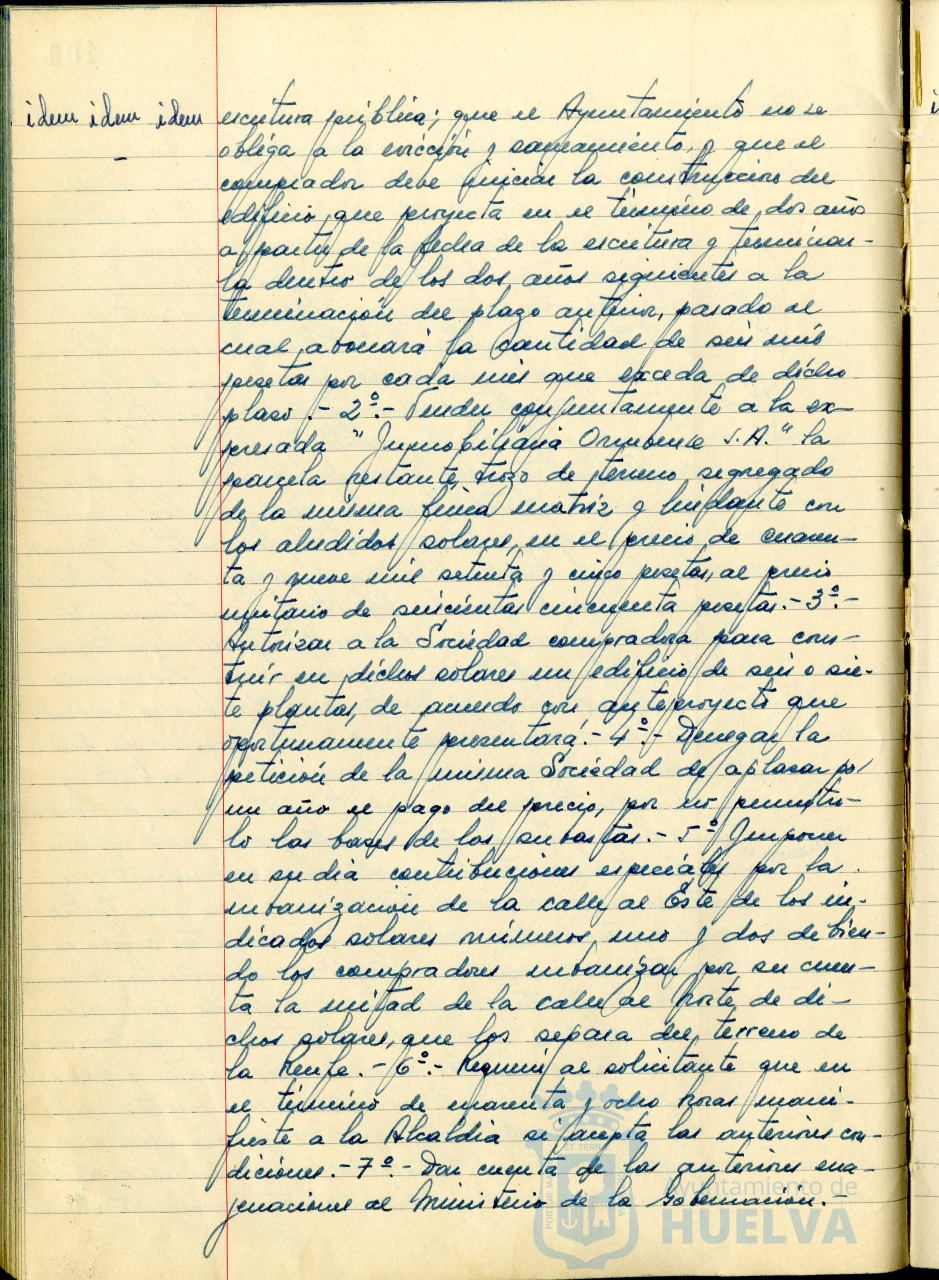 idem idem idem
-
escritura pública; que el Ayuntamiento no se
obliga a la evicción y saneamiento, y que el
comprador debe iniciar la construcción del
edificio que proyecta en el término de dos años
a partir de la fecha de la escritura y terminar-
la dentro de los dos años siguientes a la
terminación del plazo anterior, pasado el
cual abonará la cantidad de seis mil
pesetas por cada mes que exceda de dicho
plazo.- 2º.- Vender conjuntamente a la ex-
presada "Inmobiliaria Onubense S.A." la
parcela restante, trozo de terreno segregado
de la misma finca matriz y lindante con
los aludidos solares, en el precio de cuaren-
ta y nueve mil setenta y cinco pesetas, al precio
unitario de seiscientas cincuenta pesetas.- 3º.-
Autorizar a la Sociedad compradora para cons-
truir en dichos solares un edificio de seis o sie-
te plantas, de acuerdo con anteproyecto que
oportunamente presentará.- 4º.- Denegar la
petición de la misma Sociedad de aplazar por
un año el pago del precio, por no permitir-
lo las bases de las subastas.- 5º Imponer
en su dia contribuciones especiales por la
urbanización de la calle al Éste de los in-
dicados solares números uno y dos debien-
do los compradores urbanizar por su cuen-
ta la mitad de la calle al Norte de di-
chos solares, que los separa del terreno de
la Renfe.- 6º.- Requerir al solicitante que en
el término de cuarenta y ocho horas mani-
fieste a la Alcaldía si acepta las anteriores con-
diciones.- 7º.- Dar cuenta de las anteriores ena-
jenaciones al Ministerio de la Gobernación.-
Ayuntamiento de
HUELVA